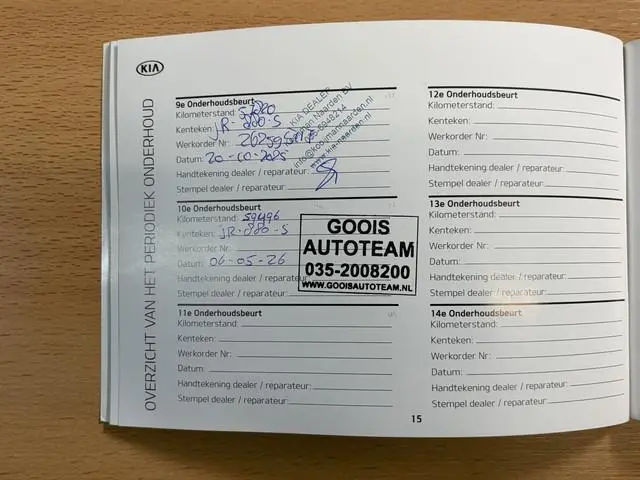 KIA
OVERZICHT VAN HET PERIODIEK ONDERHOUD
9e Onderhoudsbeurt
Kilometerstand:
Kenteken: JR-880-S
Werkorder Nr:
Datum: 20-10-2025
Handtekening dealer / reparateur:
Stempel dealer / reparateur:
KIA DEALER
Naarden BV
info@kooijmannaarden.nl
www.kia-naarden.nl
10e Onderhoudsbeurt
Kilometerstand: 59496
Kenteken: JR-880-S
Werkorder Nr:
Datum: 06-05-26
Handtekening dealer / reparateur
Stempel dealer / reparateur:
GOOIS
AUTOTEAM
035-2008200
WWW.GOOISAUTOTEAM.NL
11e Onderhoudsbeurt
Kilometerstand:
Kenteken:
Werkorder Nr:
Datum:
Handtekening dealer / reparateur:
Stempel dealer / reparateur:
12e Onderhoudsbeurt
Kilometerstand:
Kenteken:
Werkorder Nr:
Datum:
Handtekening dealer / reparateur:
Stempel dealer / reparateur:
13e Onderhoudsbeurt
Kilometerstand:
Kenteken:
Werkorder Nr:
Datum:
Handtekening dealer / reparateur:
Stempel dealer / reparateur:
14e Onderhoudsbeurt
Kilometerstand:
Kenteken:
Werkorder Nr:
Datum:
Handtekening dealer / reparateur:
Stempel dealer / reparateur:
15